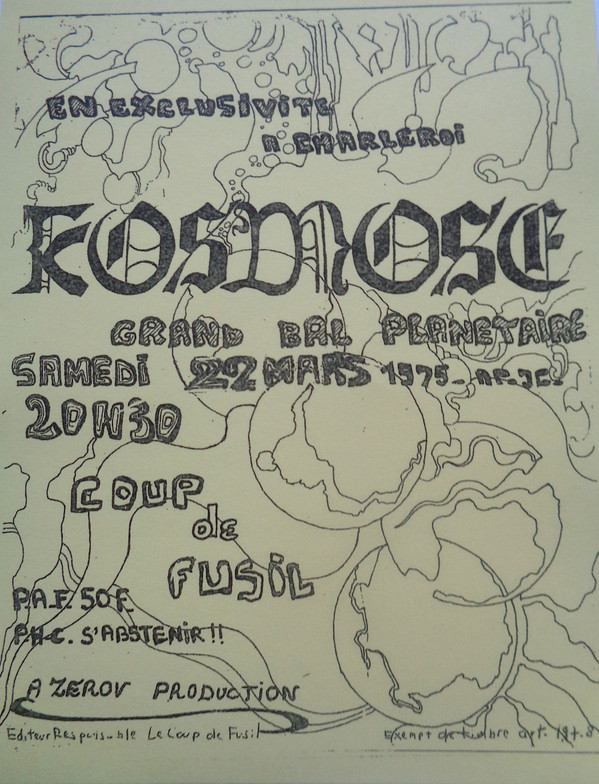 EN EXCLUSIVITE
A CHARLEROI
KOSMOSE
GRAND BAL PLANETAIRE
SAMEDI 22 MARS 1975 - AP. JC.
20H30
COUP
de
FUSIL
P.A.F. 50 F.
PH-C. S'ABSTENIR !!
A ZEROV PRODUCTION
Editeur Responsable Le Coup de Fusil
Exempt de timbre art.